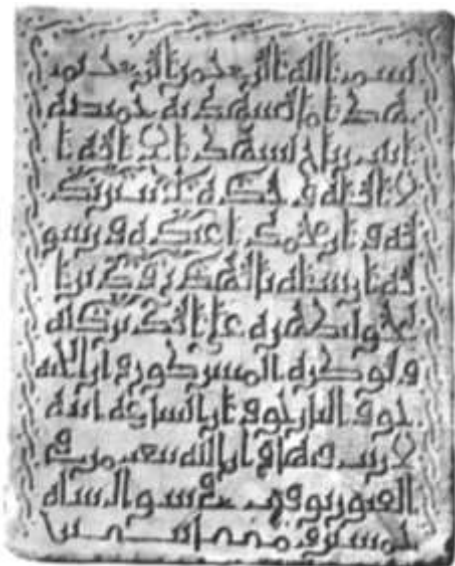 بسم الله الرحمن الرحيم
هذا ما تشهد به
تشهد الا اله ا
لا الله وحده لا شريك
له وان محمدا عبده ورسو
له ارسله بالهدى ودين ا
لحق ليظهره على الدين كله
ولو كره المشركون وان الجنه
حق والنار حق وان الساعه اتيه
لا ريب فيها وان الله يبعث من في
القبور توفيت في شوال سنه